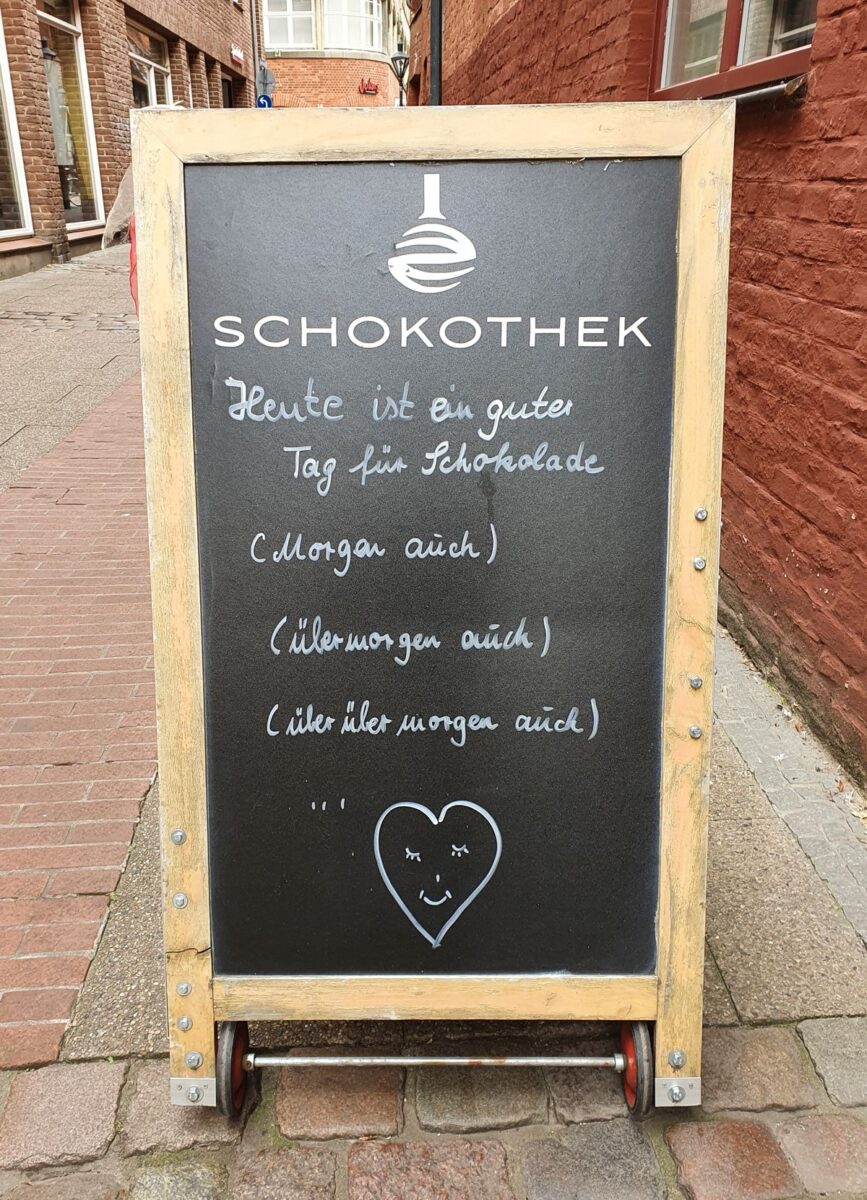 SCHOKOTHEK
Heute ist ein guter
Tag für Schokolade
(Morgen auch)
(übermorgen auch)
(über über morgen auch)
...